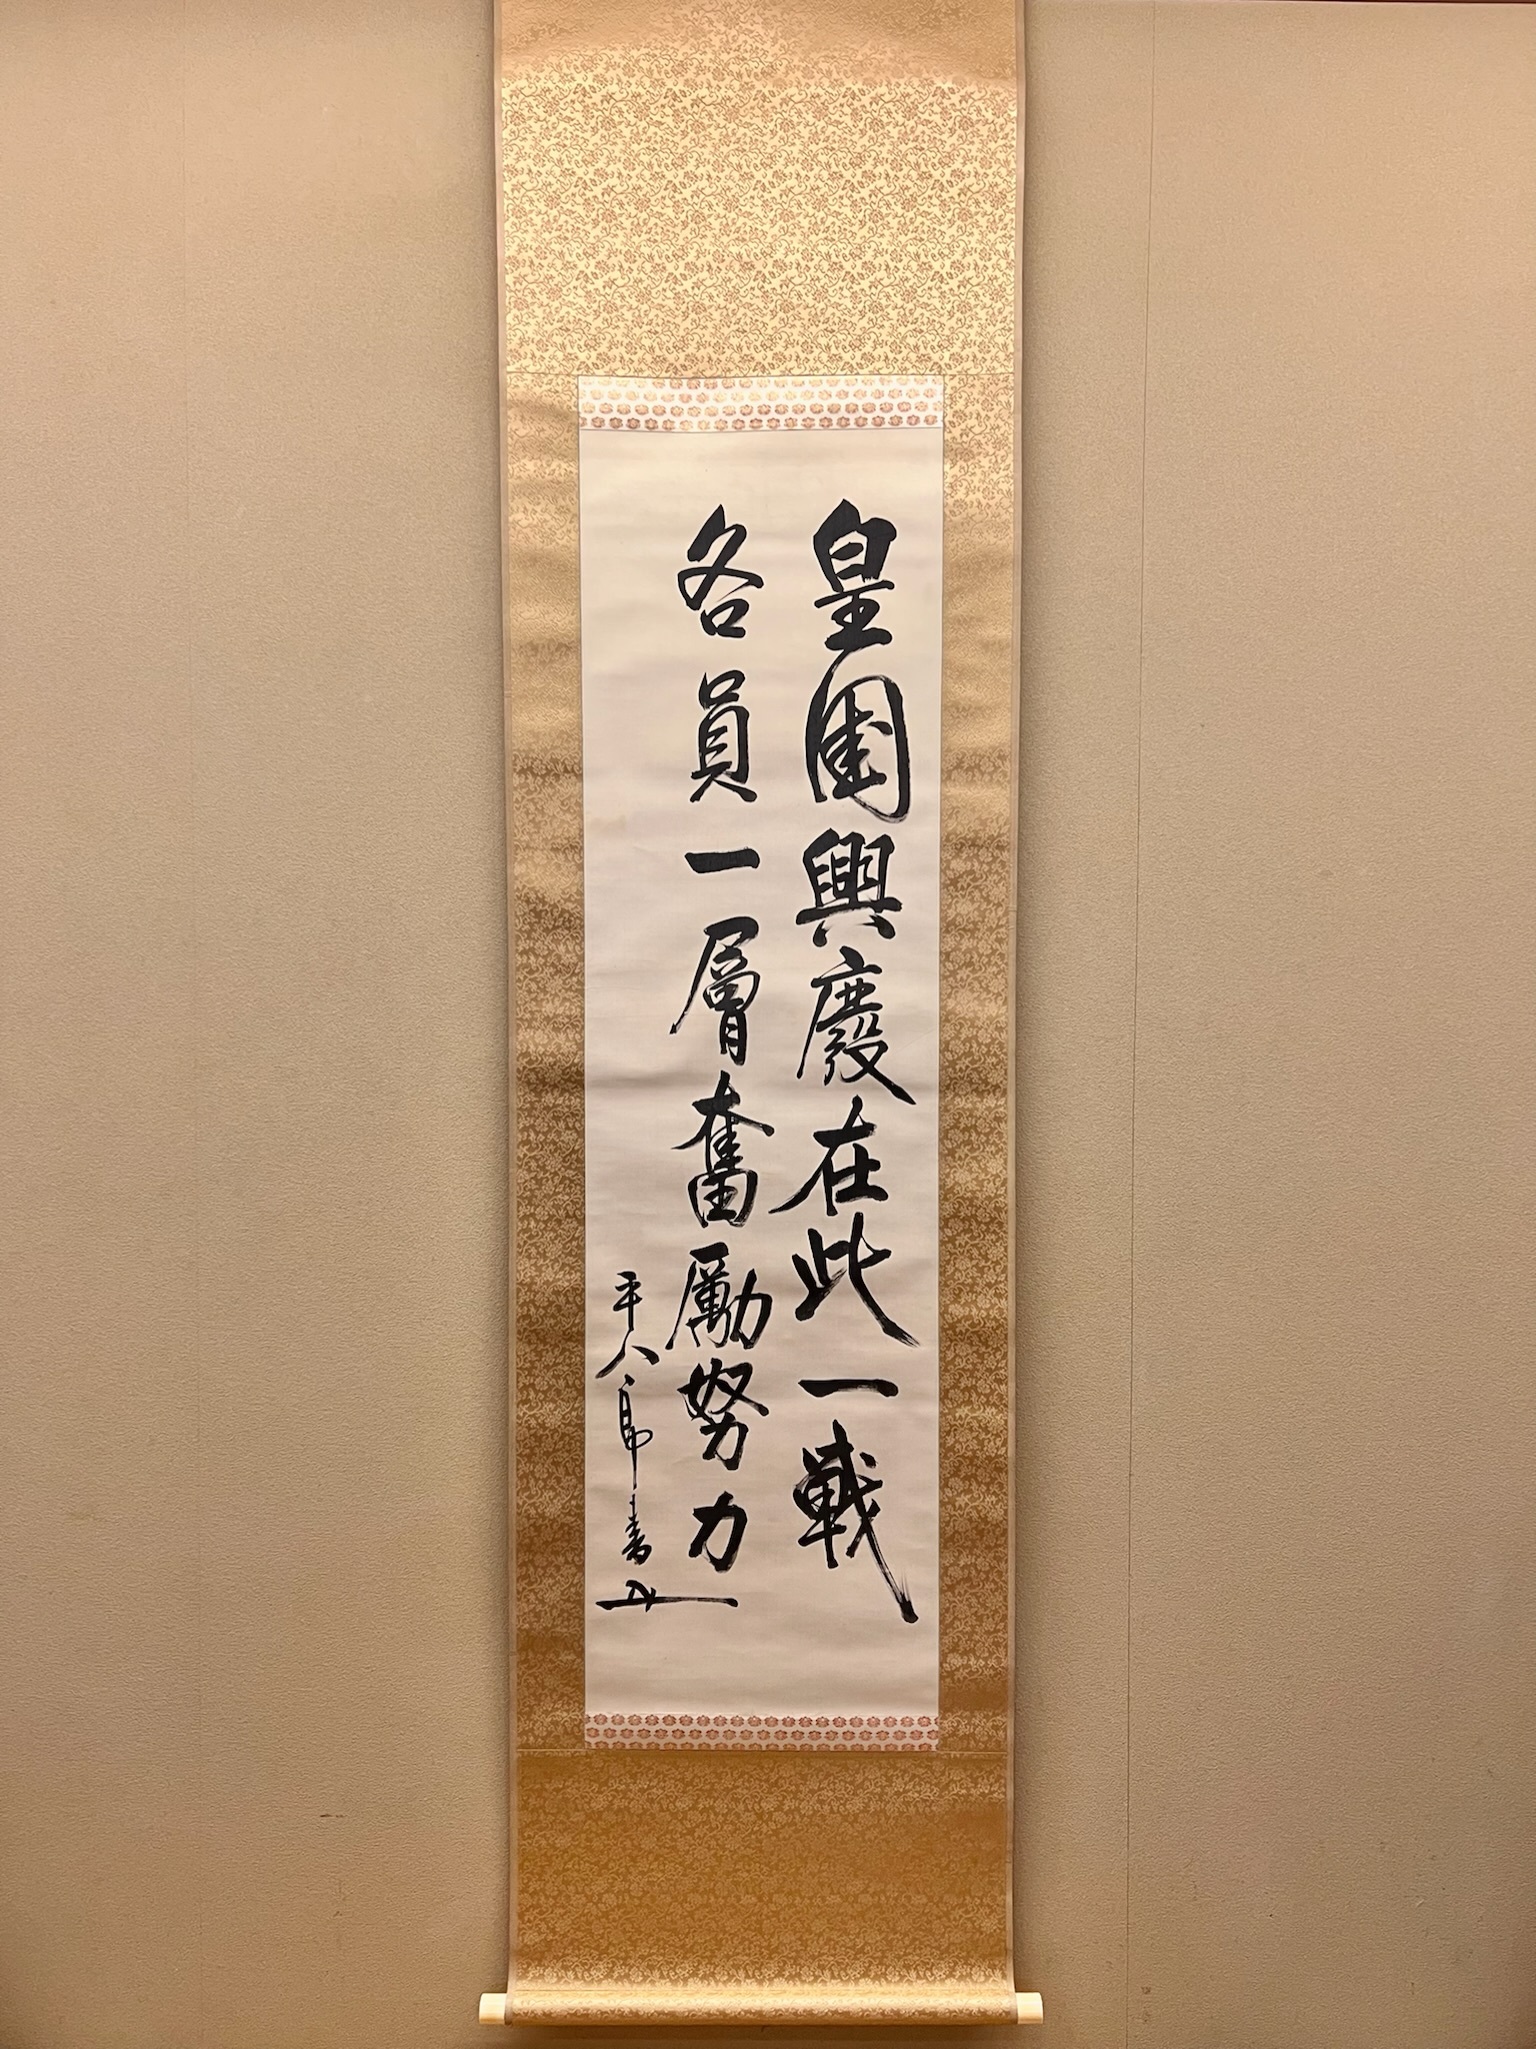 皇国興廢在此一戦
各員一層奮励努力
平八郎書